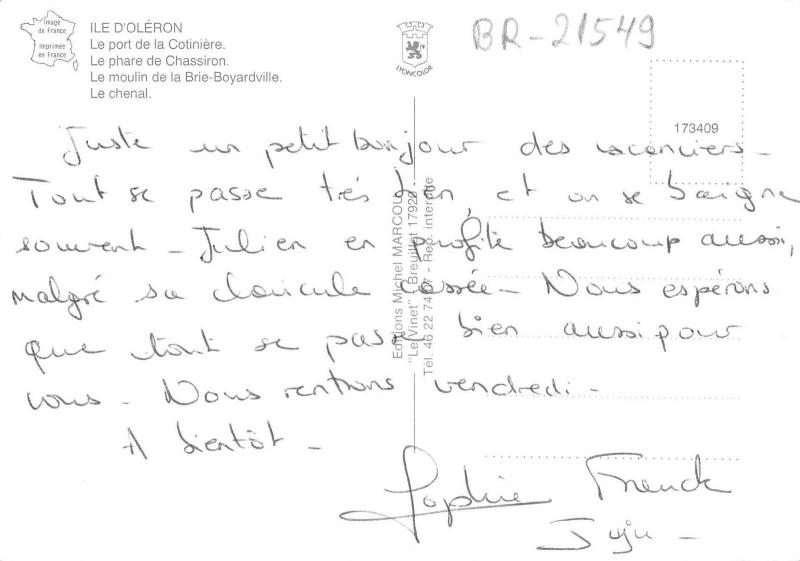 Image de France
Imprimée en France
ILE D'OLÉRON
Le port de la Cotinière.
Le phare de Chassiron.
Le moulin de la Brie-Boyardville.
Le chenal.
LYONCOLOR
BR-21549
173409
Juste un petit bonjour des vacanciers -
Tout se passe très bien, et on se baigne
souvent - Julien en profite beaucoup aussi,
malgré sa clavicule cassée - Nous espérons
que tout se passe bien aussi pour
vous - Nous rentrons vendredi -
A bientôt -
Sophie Franck
Juju -
Editions Michel MARCOU
"Le Vinet" Breuillet 17920 -
Tél. 46 22 74 07 - Rep. interdite